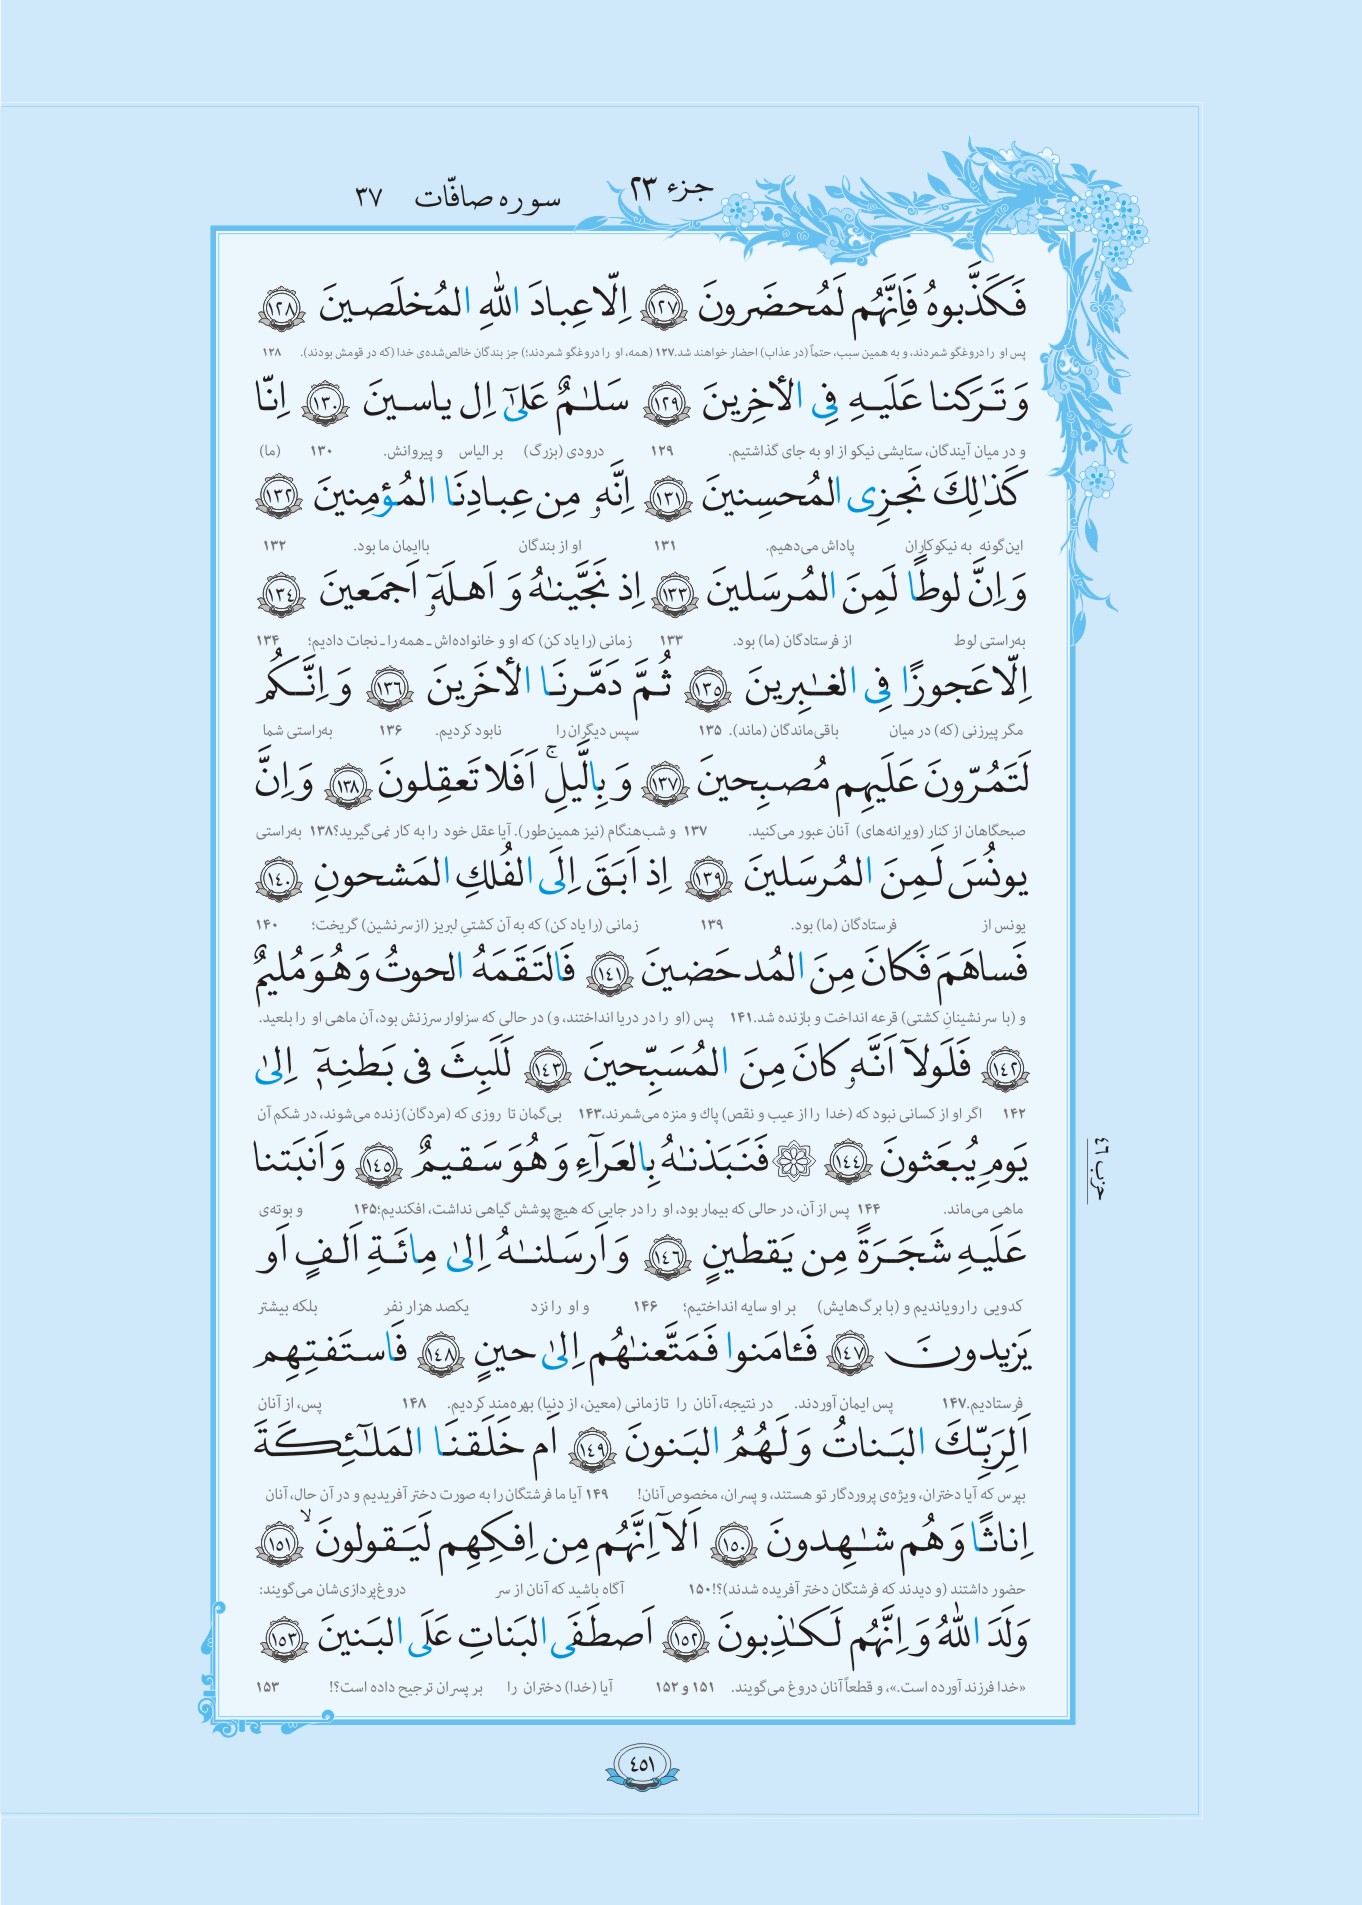 جزء ۲۳
سوره صافّات ۳۷
فَكَذَّبوهُ فَاِنَّهُم لَمُحضَرونَ ﴿١٢٧﴾ اِلّا عِبادَ اللّٰهِ المُخلَصينَ ﴿١٢٨﴾
پس او را دروغگو شمردند، و به همین سبب، حتماً (در عذاب) احضار خواهند شد.۱۲۷ (همه، او را دروغگو شمردند؛) جز بندگان خالص‌شده‌ی خدا (که در قومش بودند). ۱۲۸
وَ تَرَكنا عَلَيهِ فِى الأخِرينَ ﴿١٢٩﴾ سَلٰمٌ عَلىٰٓ اِل ياسينَ ﴿١٣٠﴾ اِنّا
و در میان آیندگان، ستایشی نیکو از او به جای گذاشتیم. ۱۲۹ درودی (بزرگ) بر الیاس و پیروانش. ۱۳۰ (ما)
كَذٰلِكَ نَجزِى المُحسِنينَ ﴿١٣١﴾ اِنَّهۥ مِن عِبادِنَا المُؤمِنينَ ﴿١٣٢﴾
این‌گونه به نیکوکاران پاداش می‌دهیم. ۱۳۱ او از بندگان باایمان ما بود. ۱۳۲
وَ اِنَّ لوطًا لَمِنَ المُرسَلينَ ﴿١٣٣﴾ اِذ نَجَّينٰهُ وَ اَهلَهۥٓ اَجمَعينَ ﴿١٣٤﴾
به‌راستی لوط از فرستادگان (ما) بود. ۱۳۳ زمانی (را یاد کن) که او و خانواده‌اش ـ همه را ـ نجات دادیم؛ ۱۳۴
اِلّا عَجوزًا فِى الغٰبِرينَ ﴿١٣٥﴾ ثُمَّ دَمَّرنَا الأخَرينَ ﴿١٣٦﴾ وَ اِنَّكُم
مگر پیرزنی (که) در میان باقی‌ماندگان (ماند). ۱۳۵ سپس دیگران را نابود کردیم. ۱۳۶ به‌راستی شما
لَتَمُرّونَ عَلَيهِم مُصبِحينَ ﴿١٣٧﴾ وَ بِالَّيلِ ۚ اَفَلا تَعقِلونَ ﴿١٣٨﴾ وَ اِنَّ
صبحگاهان از کنار (ویرانه‌های) آنان عبور می‌کنید. ۱۳۷ و شب‌هنگام (نیز همین‌طور). آیا عقل خود را به کار نمی‌گیرید؟۱۳۸ به‌راستی
يونُسَ لَمِنَ المُرسَلينَ ﴿١٣٩﴾ اِذ اَبَقَ اِلَى الفُلكِ المَشحونِ ﴿١٤٠﴾
یونس از فرستادگان (ما) بود. ۱۳۹ زمانی (را یاد کن) که به آن کشتیِ لبریز (از سرنشین) گریخت؛ ۱۴۰
فَساهَمَ فَكانَ مِنَ المُدحَضينَ ﴿١٤١﴾ فَالتَقَمَهُ الحوتُ وَ هُوَ مُليمٌ
و (با سرنشینانِ کشتی) قرعه انداخت و بازنده شد.۱۴۱ پس (او را در دریا انداختند، و) در حالی که سزاوار سرزنش بود، آن ماهی او را بلعید.
﴿١٤٢﴾ فَلَولآ اَنَّهۥ كانَ مِنَ المُسَبِّحينَ ﴿١٤٣﴾ لَلَبِثَ فى بَطنِهٖٓ اِلىٰ
۱۴۲ اگر او از کسانی نبود که (خدا را از عیب و نقص) پاک و منزه می‌شمرند،۱۴۳ بی‌گمان تا روزی که (مردگان) زنده می‌شوند، در شکم آن
يَومِ يُبعَثونَ ﴿١٤٤﴾ ۞ فَنَبَذنٰهُ بِالعَرآءِ وَ هُوَ سَقيمٌ ﴿١٤٥﴾ وَ اَنبَتنا
ماهی می‌ماند. ۱۴۴ پس از آن، در حالی که بیمار بود، او را در جایی که هیچ پوشش گیاهی نداشت، افکندیم؛۱۴۵ و بوته‌ی
عَلَيهِ شَجَرَةً مِن يَقطينٍ ﴿١٤٦﴾ وَ اَرسَلنٰهُ اِلىٰ مِائَةِ اَلفٍ اَو
کدویی را رویاندیم و (با برگ‌هایش) بر او سایه انداختیم؛ ۱۴۶ و او را نزد یکصد هزار نفر بلکه بیشتر
يَزيدونَ ﴿١٤٧﴾ فَـٔامَنوا فَمَتَّعنٰهُم اِلىٰ حينٍ ﴿١٤٨﴾ فَاستَفتِهِم
فرستادیم.۱۴۷ پس ایمان آوردند. در نتیجه، آنان را تا زمانی (معین، از دنیا) بهره‌مند کردیم. ۱۴۸ پس، از آنان
اَلِرَبِّكَ البَناتُ وَ لَهُمُ البَنونَ ﴿١٤٩﴾ اَم خَلَقنَا المَلٰٓئِكَةَ
بپرس که آیا دختران، ویژه‌ی پروردگار تو هستند، و پسران، مخصوص آنان! ۱۴۹ آیا ما فرشتگان را به صورت دختر آفریدیم و در آن حال، آنان
اِناثًا وَ هُم شٰهِدونَ ﴿١٥٠﴾ اَلآ اِنَّهُم مِن اِفكِهِم لَيَقولونَ ۙ ﴿١٥١﴾
حضور داشتند (و دیدند که فرشتگان دختر آفریده شدند)؟!۱۵۰ آگاه باشید که آنان از سر دروغ‌پردازی‌شان می‌گویند:
وَلَدَ اللّٰهُ وَ اِنَّهُم لَكٰذِبونَ ﴿١٥٢﴾ اَصطَفَى البَناتِ عَلَى البَنينَ ﴿١٥٣﴾
«خدا فرزند آورده است.»، و قطعاً آنان دروغ می‌گویند. ۱۵۱ و ۱۵۲ آیا (خدا) دختران را بر پسران ترجیح داده است؟! ۱۵۳
حزب ٤٦
٤٥١